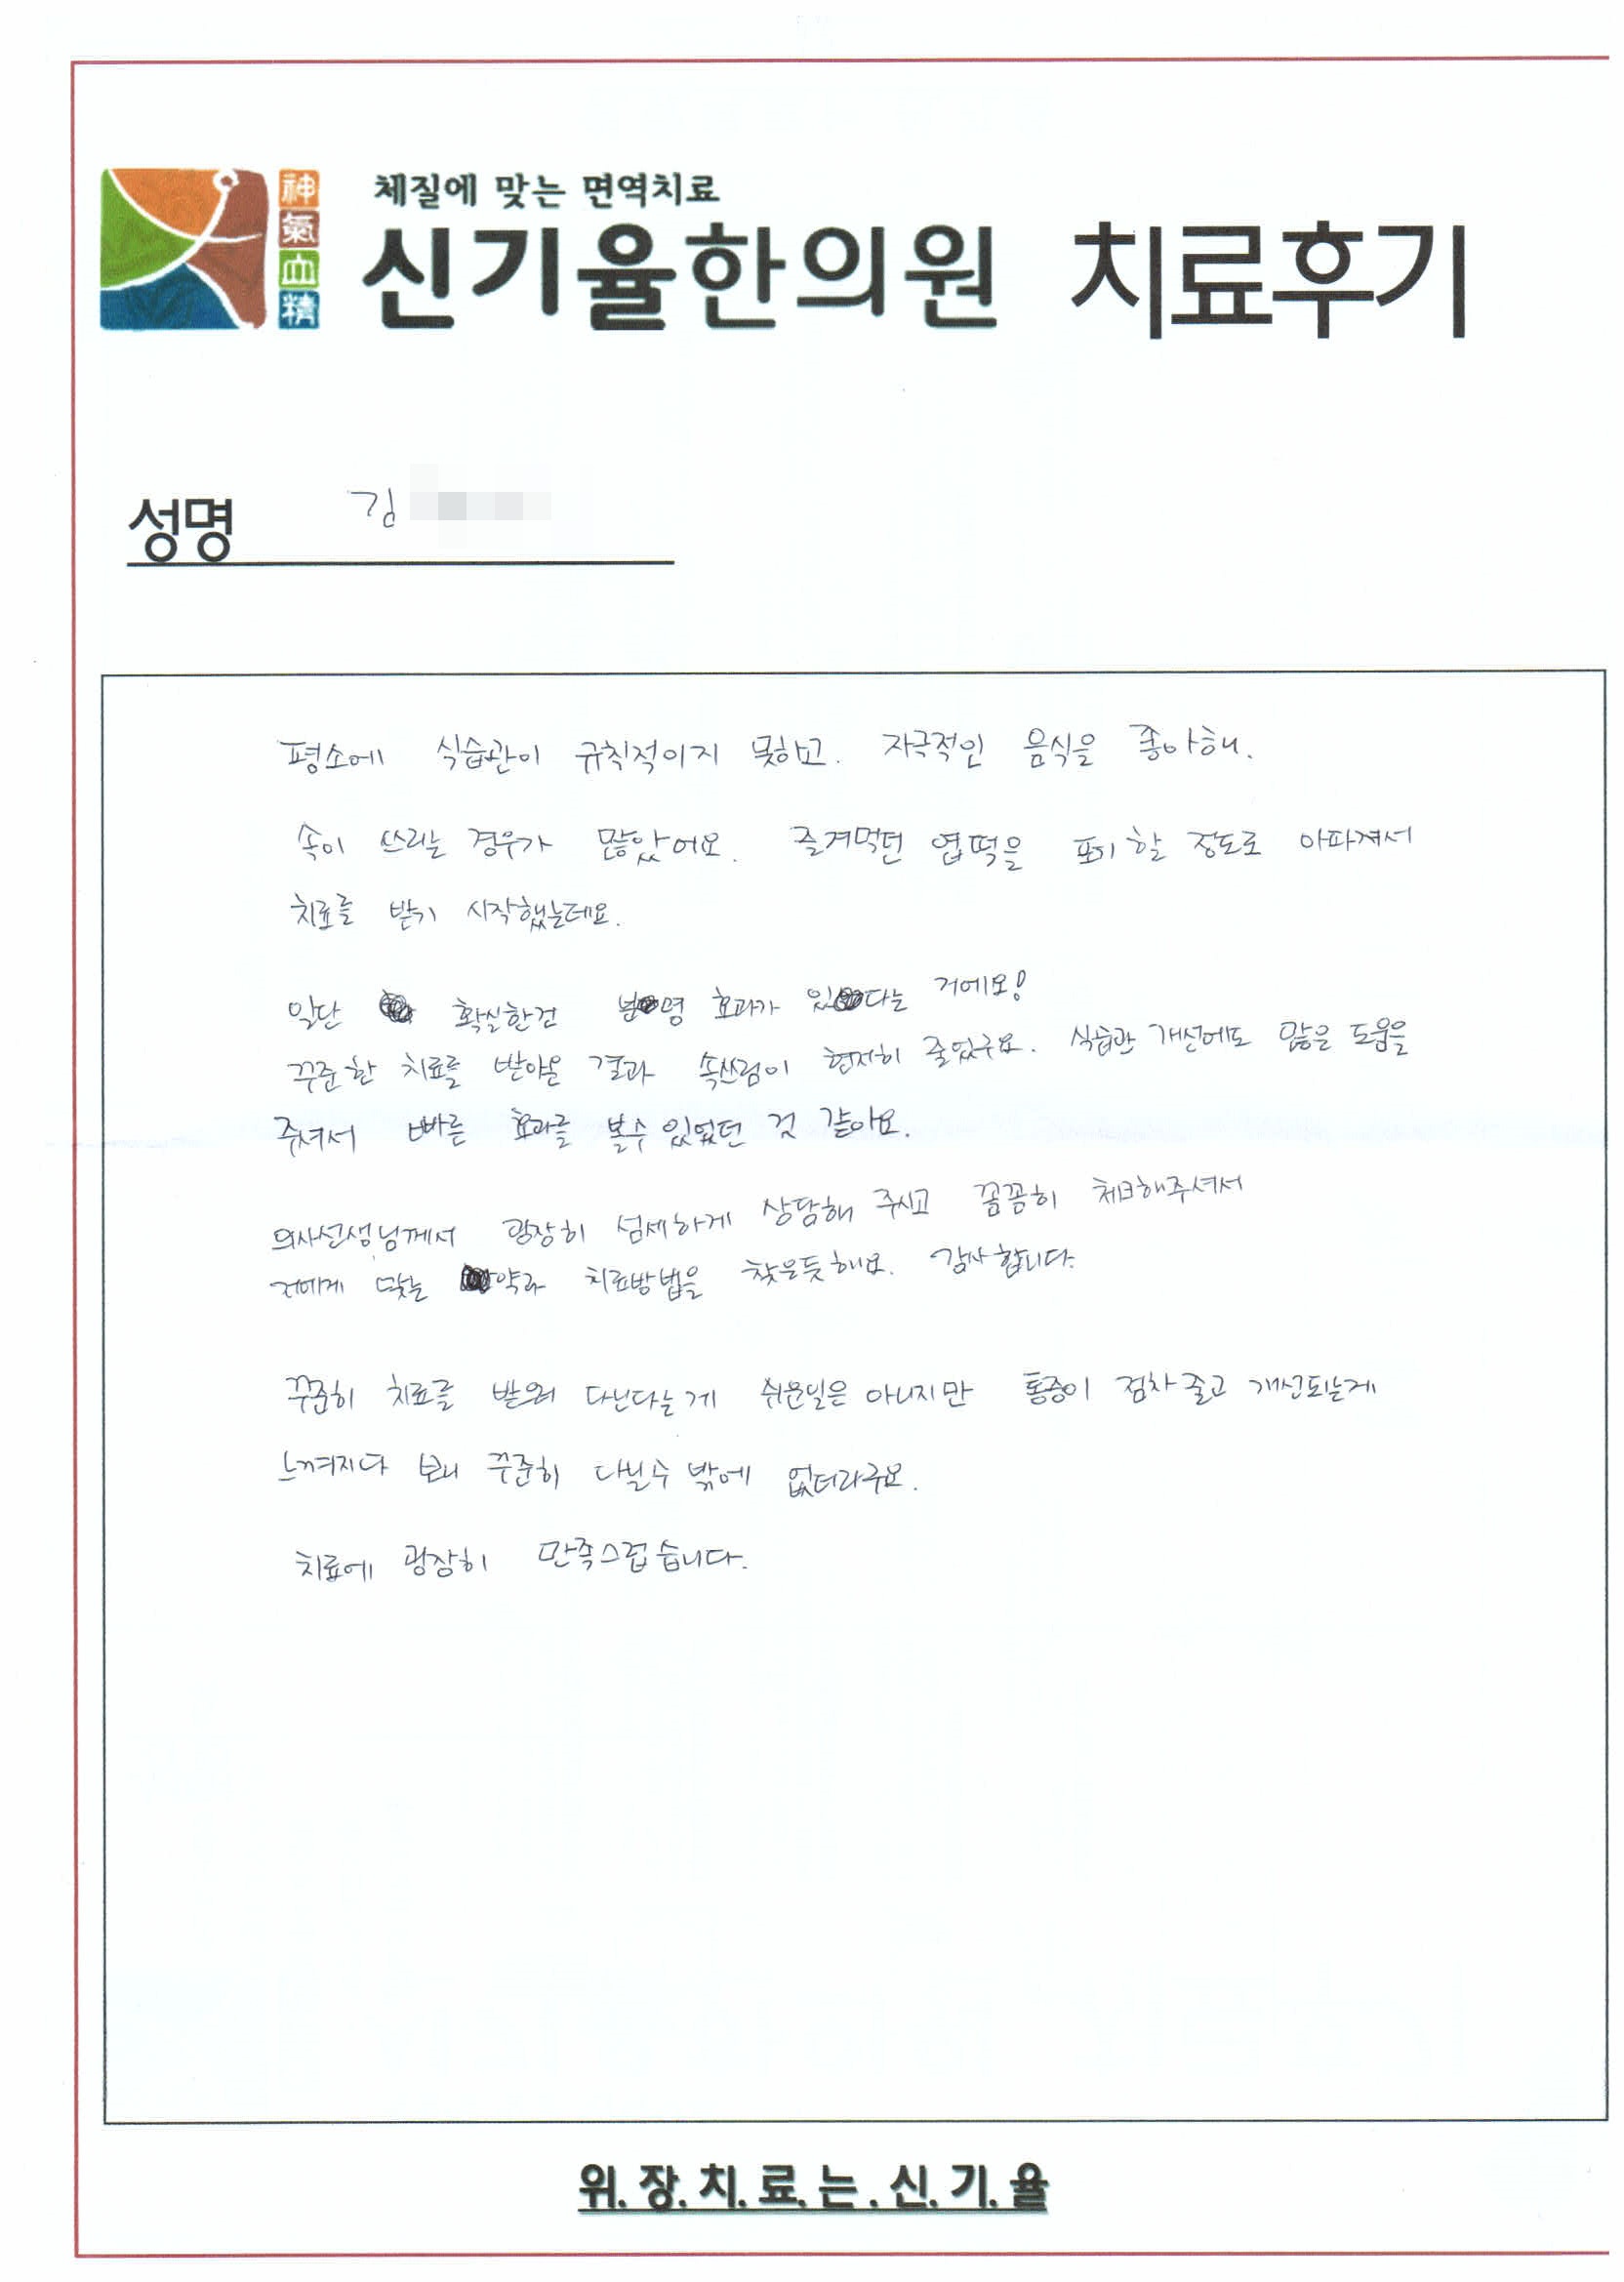 神氣血精
체질에 맞는 면역치료
신기율한의원 치료후기
성명 김
평소에 식습관이 규칙적이지 못하고. 자극적인 음식을 좋아해.
속이 쓰리는 경우가 많았어요. 즐겨먹던 엽떡을 포기할 정도로 아파져서
치료를 받기 시작했는데요.
일단 확실한건 분명 효과가 있다는 거에요!
꾸준한 치료를 받아온 결과 속쓰림이 현저히 줄었구요. 식습관 개선에도 많은 도움을
주셔서 빠른 효과를 볼수있었던 것 같아요.
의사선생님께서 굉장히 섬세하게 상담해 주시고 꼼꼼히 체크해주셔서
저에게 맞는 약과 치료방법을 찾은듯해요. 감사합니다.
꾸준히 치료를 받으러 다닌다는게 쉬운일은 아니지만 통증이 점차 줄고 개선되는게
느껴지다 보니 꾸준히 다닐수 밖에 없더라구요.
치료에 굉장히 만족스럽습니다.
위.장.치.료.는.신.기.율